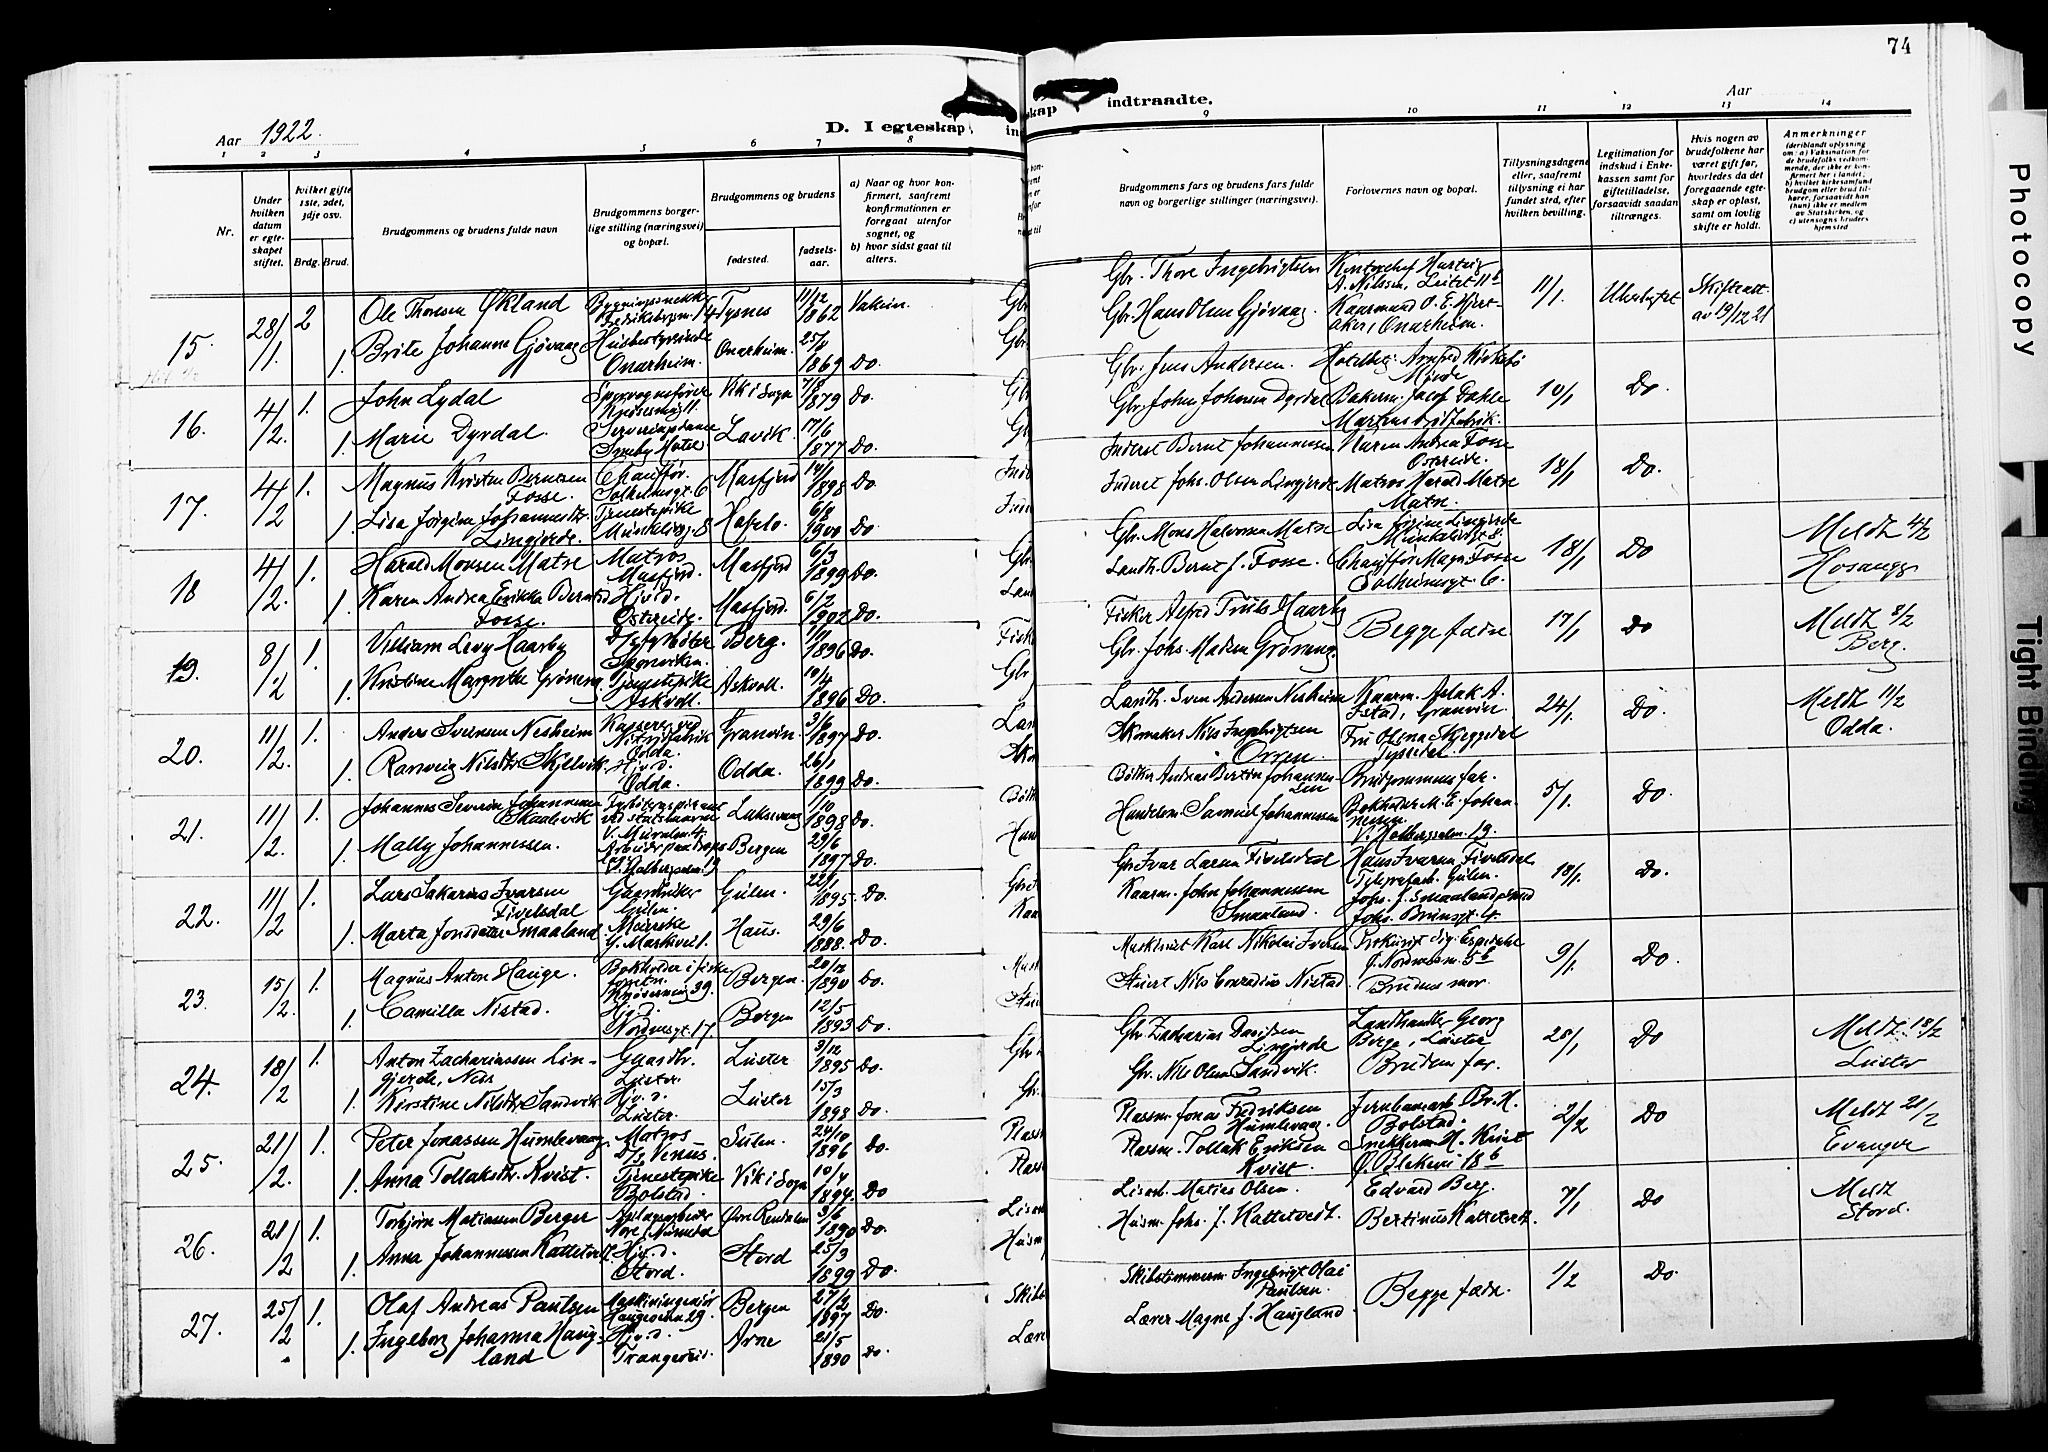 74
Aar 1922.
D. I egteskap
indtraadte.
Aar
1 2 3 4 5 6 7 8 9 10 11 12 13 14
Nr.
Under hvilken datum er egteskapet stiftet.
hvilket gifte 1ste, 2det, 3dje osv.
Brdg. Brud.
Brudgommens og brudens fulde navn
Brudgommens borgerlige stilling (næringsvei) og bopæl.
Brudgommens og brudens
fødested.
fødselsaar.
a) Naar og hvor konfirmert, saafremt konfirmationen er foregaat utenfor sognet, og
b) hvor sidst gaat til alters.
Brudgommens fars og brudens fars fulde navn og borgerlige stillinger (næringsvei).
Forlovernes navn og bopæl.
Tillysningsdagene eller, saafremt tillysning ei har fundet sted, efter hvilken bevilling.
Legitimation for indskud i Enkekassen samt for giftetilladelse, forsaavidt saadan tiltrænges.
Hvis nogen av brudefolkene har været gift før, hvorledes da det foregaaende egteskap er opløst, samt om lovlig skifte er holdt.
Anmerkninger (deriblandt oplysning om: a) Vaksination for de brudefolks vedkommende, der ikke er konfirmert her i landet; b) hvilket kirkesamfund brudgom eller brud tilhører, forsaavidt han (hun) ikke er medlem av Statskirken, og c) utensogns bruders hjemsted
15. 28/1. 2 Ole Thoresen Økland Tysnes 11/12 1862 Vaksin. Gbr. Thore Ingebrigtsen 11/1. Skifteatt. av 19/12 21
1. Brite Johanne Gjøvaag Husbestyrerinde Onarheim. Onarheim. 25/4 1869 Do. Gbr. Hans Olsen Gjøvaag Kaarmand O. E. Hjertaker, Onarheim.
16. 4/2. 1. John Lydal Vik i Sogn 7/8 1879 Do. Gbr. Jens Andersen. 10/1 Do
1. Marie Dyrdal. Lavik. 17/6 1877 Do. Gbr. John Johnsen Dyrdal Bakerm. Jacob Dahle
17. 4/2 1. Magnus Kristen Berntsen Fosse. Chauffør. Solheimsgt. 6 Masfjord 14/1 1898 Do Inderst Bernt Johannessen Karen Andrea Fosse Ostereide. 18/1 Do.
1. Lisa Jørgine Johannesdtr. Lingjerde. Tjenestepike Hafslo. 6/8 1900 Do Inderst Johs. Olsen Lingjerde Matros Harald Matre Matre.
18 4/2. 1. Harald Monsen Matre Matros Masfjord. Masfjord 6/3 1899 Do. Gbr. Mons Halvorsen Matre Lisa Jørgine Lingjerde 18/1 Do Meldt 4/2 Hosanger
1. Karen Andrea Enikka Berntsd. Fosse. Hjv. d. Ostereide. Masfjord. 6/2 1902 Do. Landh. Bernt J. Fosse. Chauffør Magn. Fosse Solheimsgt. 6.
19. 8/2 1. Villiam Levy Haarby D/s fyrbøter Berg. 1896 Do. Fisker Alfred Truls Haarby Begge fædre 17/1 Do Meldt 8/2 Berg.
1. Kristine Margrethe Grøneng. Tjenestepike Askvoll. Askvoll. 10/4 1896 Do. Gbr. Johs. Madsen Grøneng.
20. 11/2. 1. Anders Svensen Nesheim Kasserer ved Nitridfabrik Odda. Granvin. 3/6 1897 Do. Landh. Sven Andersen Nesheim Kaarm. Aslak A. Granvin. 24/1. Do. Meldt 11/2 Odda.
1. Ranveig Nilsdtr. Skjelvik. Hjv. d. Odda. Odda. 26/1 1899 Do. Skomaker Nils Ingebrigtsen Fru Olena Skjeggedal Tyssedal.
21. 11/2. 1. Johannes Severin Johannessen Skaalevik V. Muralm. 4. Laksevaag 1/10 1898 Do. Bødker Andreas Bertin Johannessen Brudgommens far. 5/1. Do.
1. Mally Johannessen. Bergen 29/6 1897 Do. Handelsm. Samuel Johannessen Bokholder M. E. Johannessen. V. Holbergsalm. 19.
22. 11/2 1. Lars Sakarias Ivarsen Fivelsdal Gaardbruker Gulen. Gulen. 22/1 1895. Do. Gbr. Ivar Larsen Fivelsdal Hans Ivarsen Fivelsdal Gulen. 18/1. Do.
1. Marta Jonsdatter Smaaland. Haus. 29/6 1888. Do. Kaarm. John Johannessen Smaaland. Johs. J. Smaaland
23. 15/2. 1. Magnus Anton Hauge. Bokholder i fiskeforretn. Bergen. 20/12 1890 Do. Maskinist Karl Nikolai Iversen 9/1. Do.
1. Camilla Nistad. Hjv. d. Nordnesgt. 17. Bergen 12/5 1893 Do. Stuert Nils Conradius Nistad. Brudens mor.
24. 18/2 1. Anton Zachariassen Lingjerde, Nes Gaardbr. Luster. Luster 3/12 1895 Do. Gbr. Zacharias Davidsen Lingjerde Landhandler Georg Berge, Luster 28/1 Do Meldt 18/2 Luster
1. Kirstine Nilsdtr. Sandvik Hjv. d. Luster. Luster 15/3 1898 Do. Gbr. Nils Olsen Sandvik Brudens far.
25. 21/2. 1. Peter Jonassen Humlevaag. Matros D/s Venus. Sulen. 24/10 1896 Do Plassm. Jonas Fredriksen Humlevaag. Bolstad. 2/2 Do Meldt 21/2 Evanger
1. Anna Tollaksdtr. Kvist. Tjenestepike Bolstad. Vik i Sogn 10/4 1894. Do Plassm. Tollak Eriksen Kvist. Snekkerm. H. Kvist
26. 21/2 1. Torbjørn Matiassen Berger Øvre Rendalen 3/6 1890 Do. Matias Olsen. Edvard Berg. 7/1 Do Meldt Stord.
1. Anna Johannessen Kattetvedt. Hjv. d. Stord. Stord 25/3 1899 Do. Husm. Johs. J. Kattetvedt. Bertinus Kattetvedt.
27. 25/2 1. Olaf Andreas Paulsen Maskiningeniør Haugeveien 29. Bergen 27/2 1897 Do Skibstømmerm. Ingebrigt Olai Paulsen. Begge fædre. 1/2 Do.
1. Ingeborg Johanna Haugland Hjv. d. Trangereid. Arne 21/5 1890 Do. Lærer Magne J. Haugland
Photocopy
Tight Binding